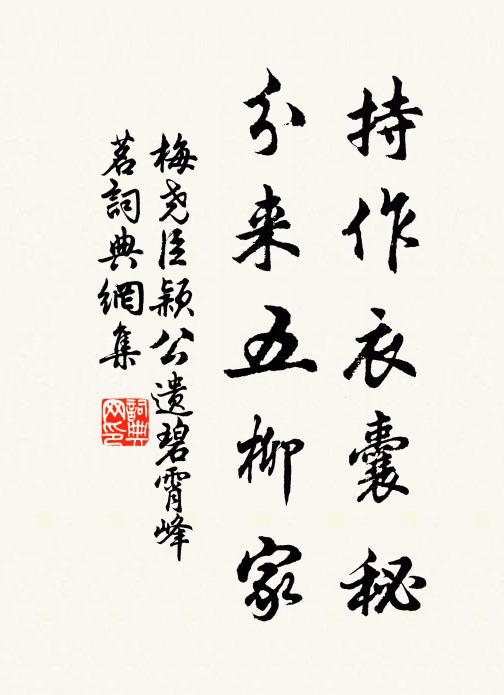 持作衣囊秘
分来五柳家
梅尧臣颖公遗碧霄峰
茗詞典網集
詞典
网印